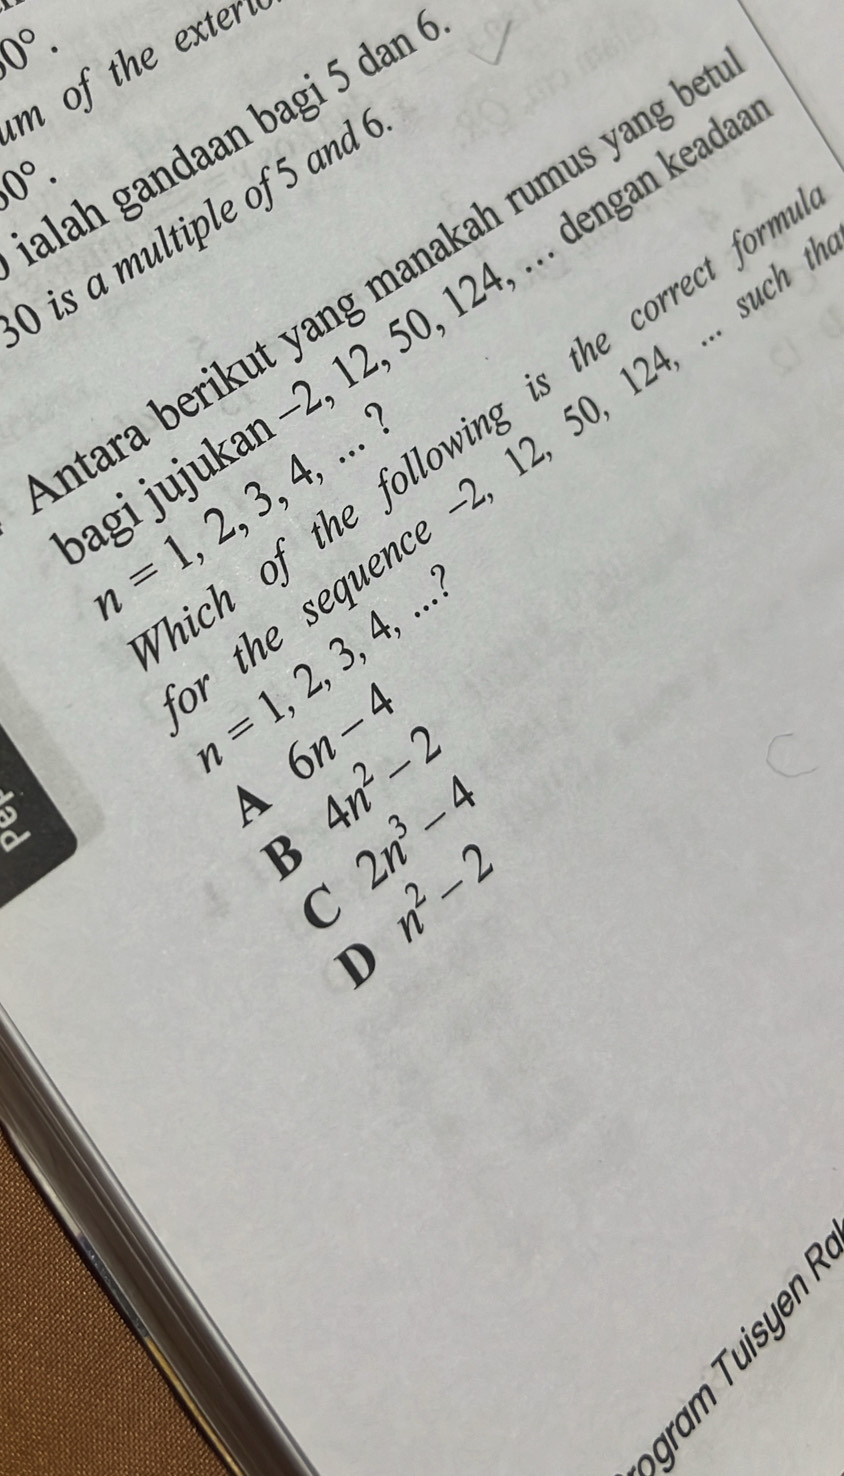 0°.
of the
0°.
ialah gandaan bagi 5 dan 6.
30 is a multiple of 5 and 6.
Antara berikut yang manakah rumus yang betul
bagi jujukan –2, 12, 50, 124, ... dengan keadaan
n = 1, 2, 3, 4, ... ?
Which of the following is the correct formula
for the sequence –2, 12, 50, 124, ... such
n = 1, 2, 3, 4, ...?
A 6n – 4
B 4n² – 2
C 2n³ – 4
D n² – 2
Tuisyen